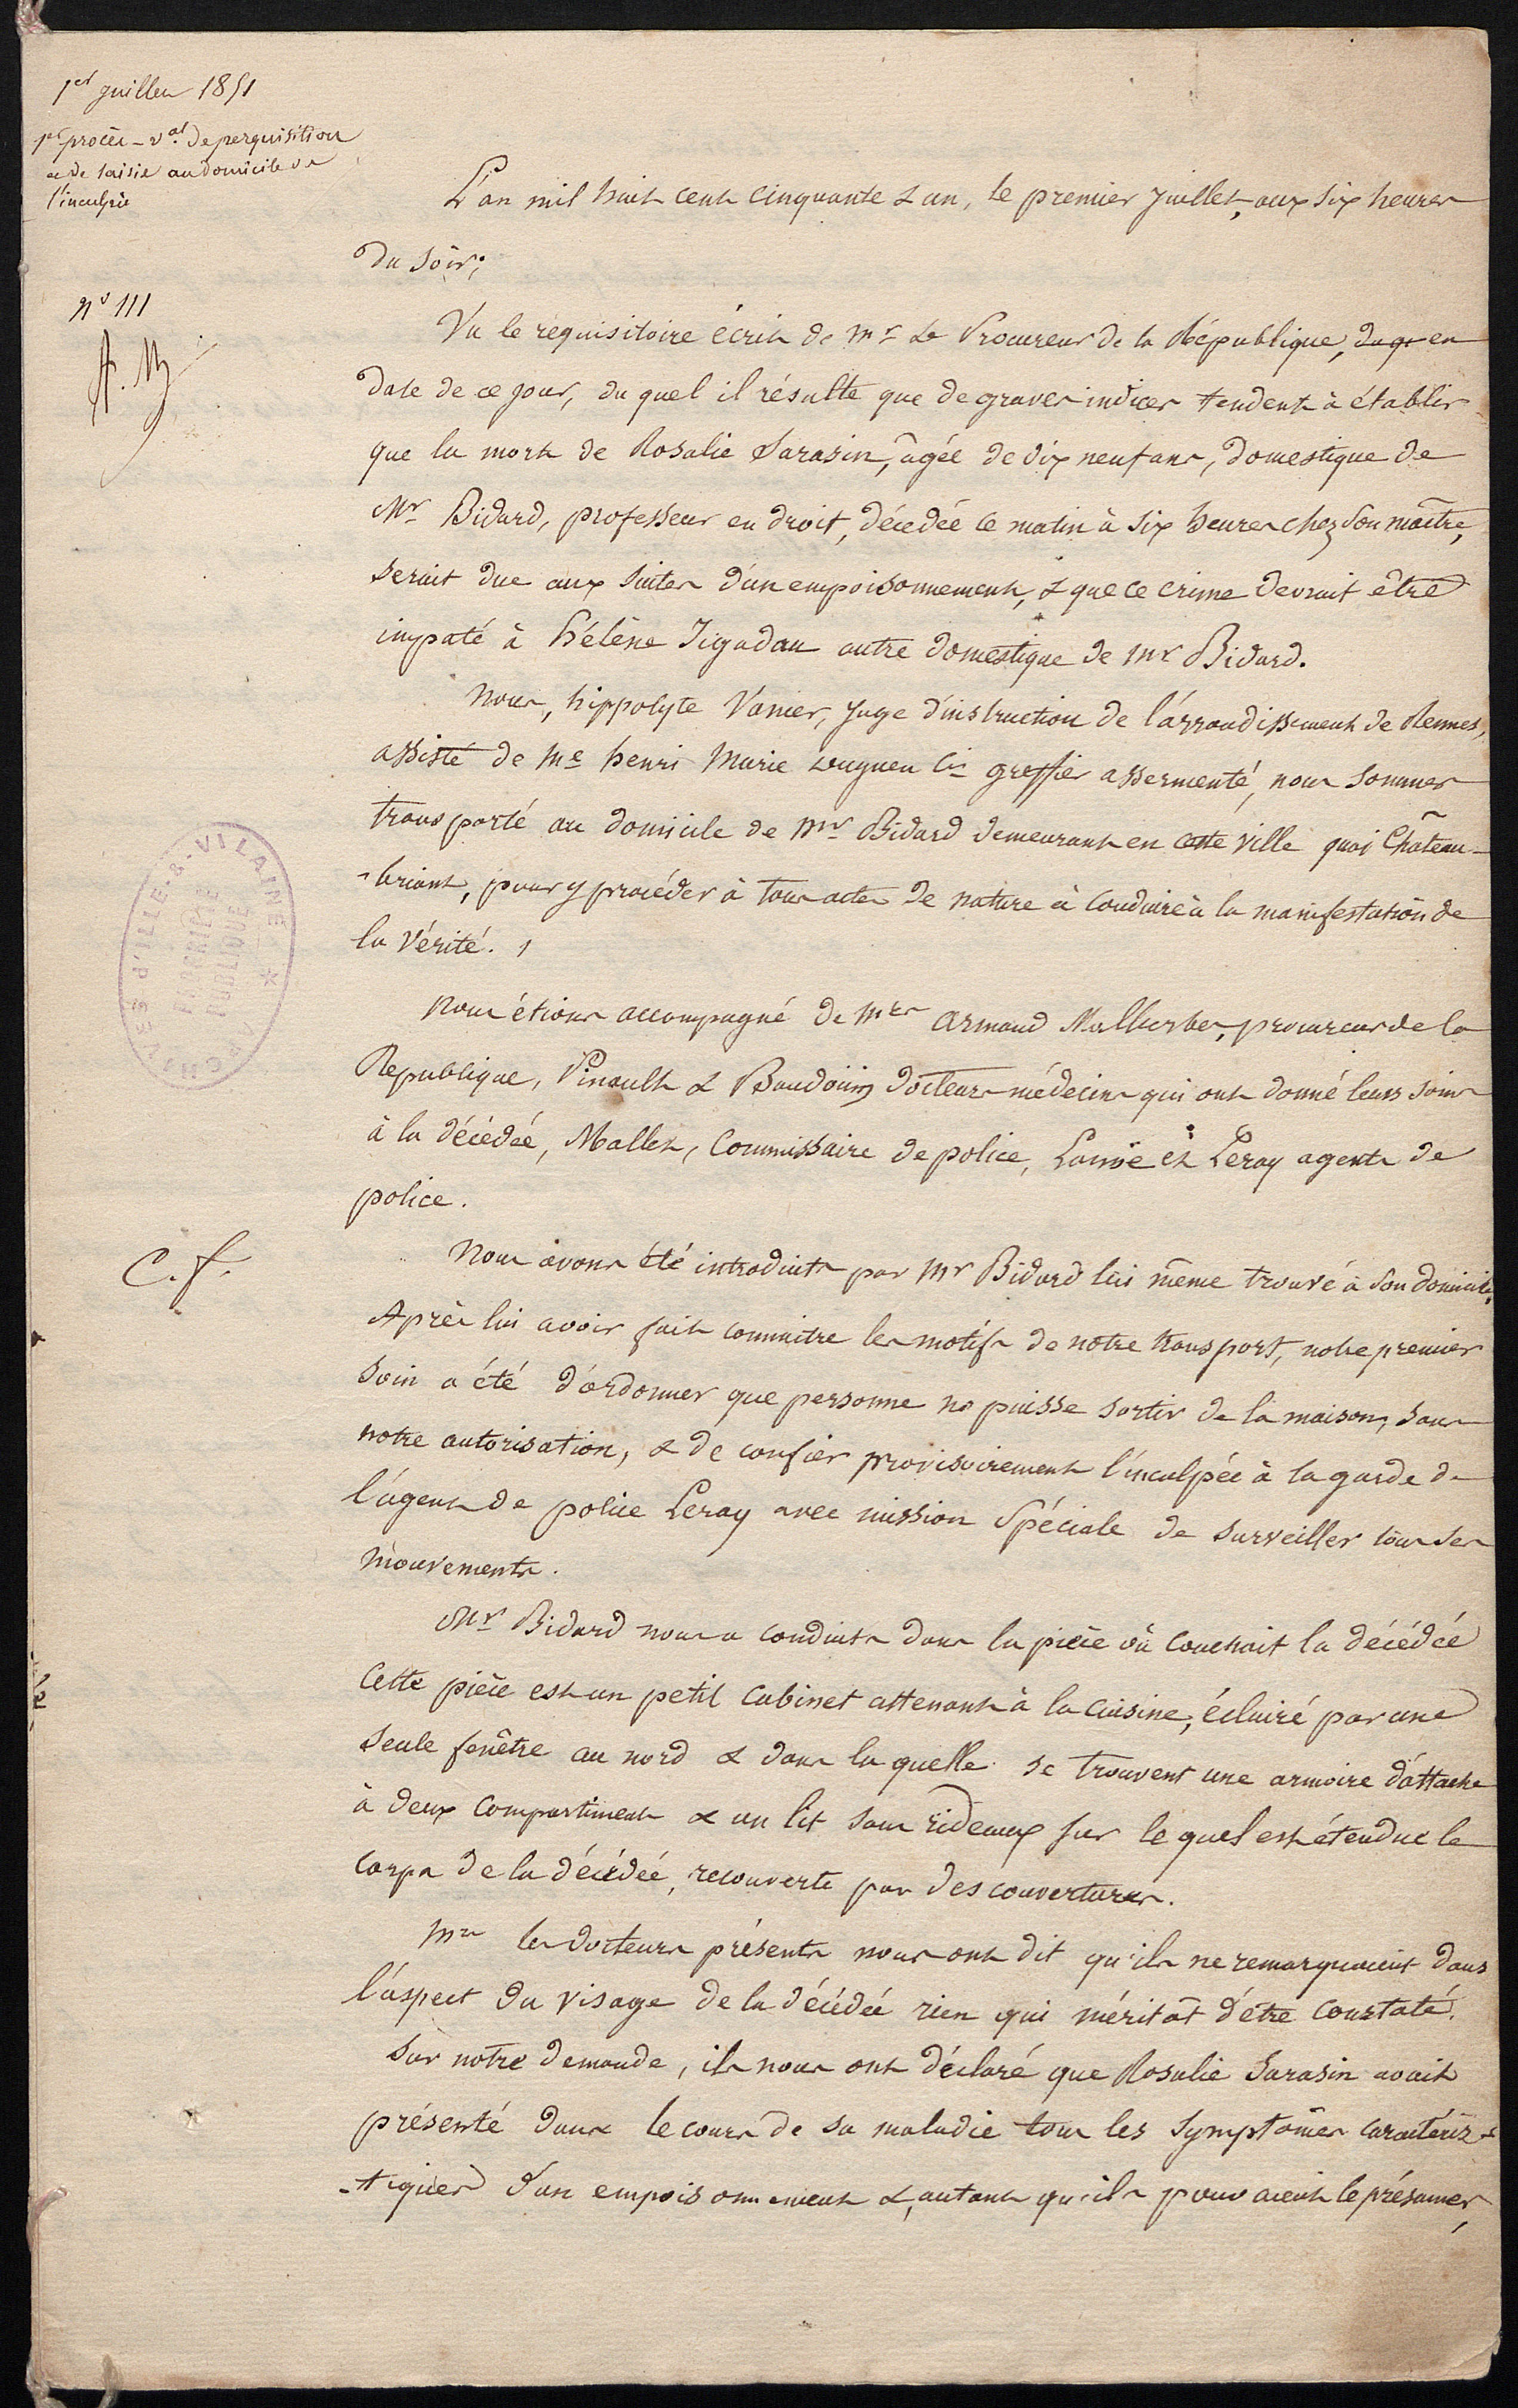 1er Juillet 1851
1er procès-val. de perquisition
et de saisie au domicile de
l'inculpée
N° 111
L'an mil huit cent cinquante & un, le premier Juillet, aux six heures
du soir;
Vu le réquisitoire écrit de Mr Le Procureur de la République, duq en
date de ce jour, du quel il résulte que de graves indices tendent à établir
que la mort de Rosalie Sarasin, âgée de dix neuf ans, domestique de
Mr Bidard, professeur en droit, décédée ce matin à six heures chez son maître,
serait due aux suites d'un empoisonnement, & que ce crime devrait être
imputé à Hélène Jigadau autre domestique de Mr Bidard.
Nous, hippolyte Vanier, Juge d'instruction de l'arrondissement de Rennes,
assisté de Me henri Marie cis greffier assermenté, nous sommes
transporté au domicile de Mr Bidard demeurant en cette ville quai Château-
-briant, pour y procéder à tous actes de nature à conduire à la manifestation de
la Vérité.
ARCHIVES d'ILLE-&-VILAINE
PROPRIÉTÉ
PUBLIQUE
Nous étions accompagné de Mrs Armand Malherbe, procureur de la
République, Pinault & Baudoüin docteurs médecins qui ont donné leurs soins
à la décédée, Mallet, Commissaire de police, et Leray agents de
police.
C. f.
Nous avons été introduits par Mr Bidard lui même trouvé à son domicile.
Après lui avoir fait connaitre les motifs de notre transport, notre premier
soin a été d'ordonner que personne ne puisse sortir de la maison, sans
notre autorisation, & de confier provisoirement l'inculpée à la garde de
l'agent de police Leray avec mission Spéciale de surveiller tous ses
mouvements.
Mr Bidard nous a conduits dans la pièce où couchait la décédée
Cette pièce est un petit cabinet attenant à la cuisine, éclairé par une
seule fenêtre au nord & dans la quelle se trouvent une armoire d'attache
à deux compartiments & un lit sans rideaux sur le quel est étendue le
corps de la décédée, recouverte par des couvertures.
Mrs les docteurs présents nous ont dit qu'ils ne remarquaient dans
l'aspect du visage de la décédée rien qui méritât d'être constaté.
Sur notre demande, ils nous ont déclaré que Rosalie Sarasin avait
présenté dans le cours de sa maladie tous les symptômes caractéris-
-tiques d'un empoisonnement &, autant qu'ils pouvaient le présumer,